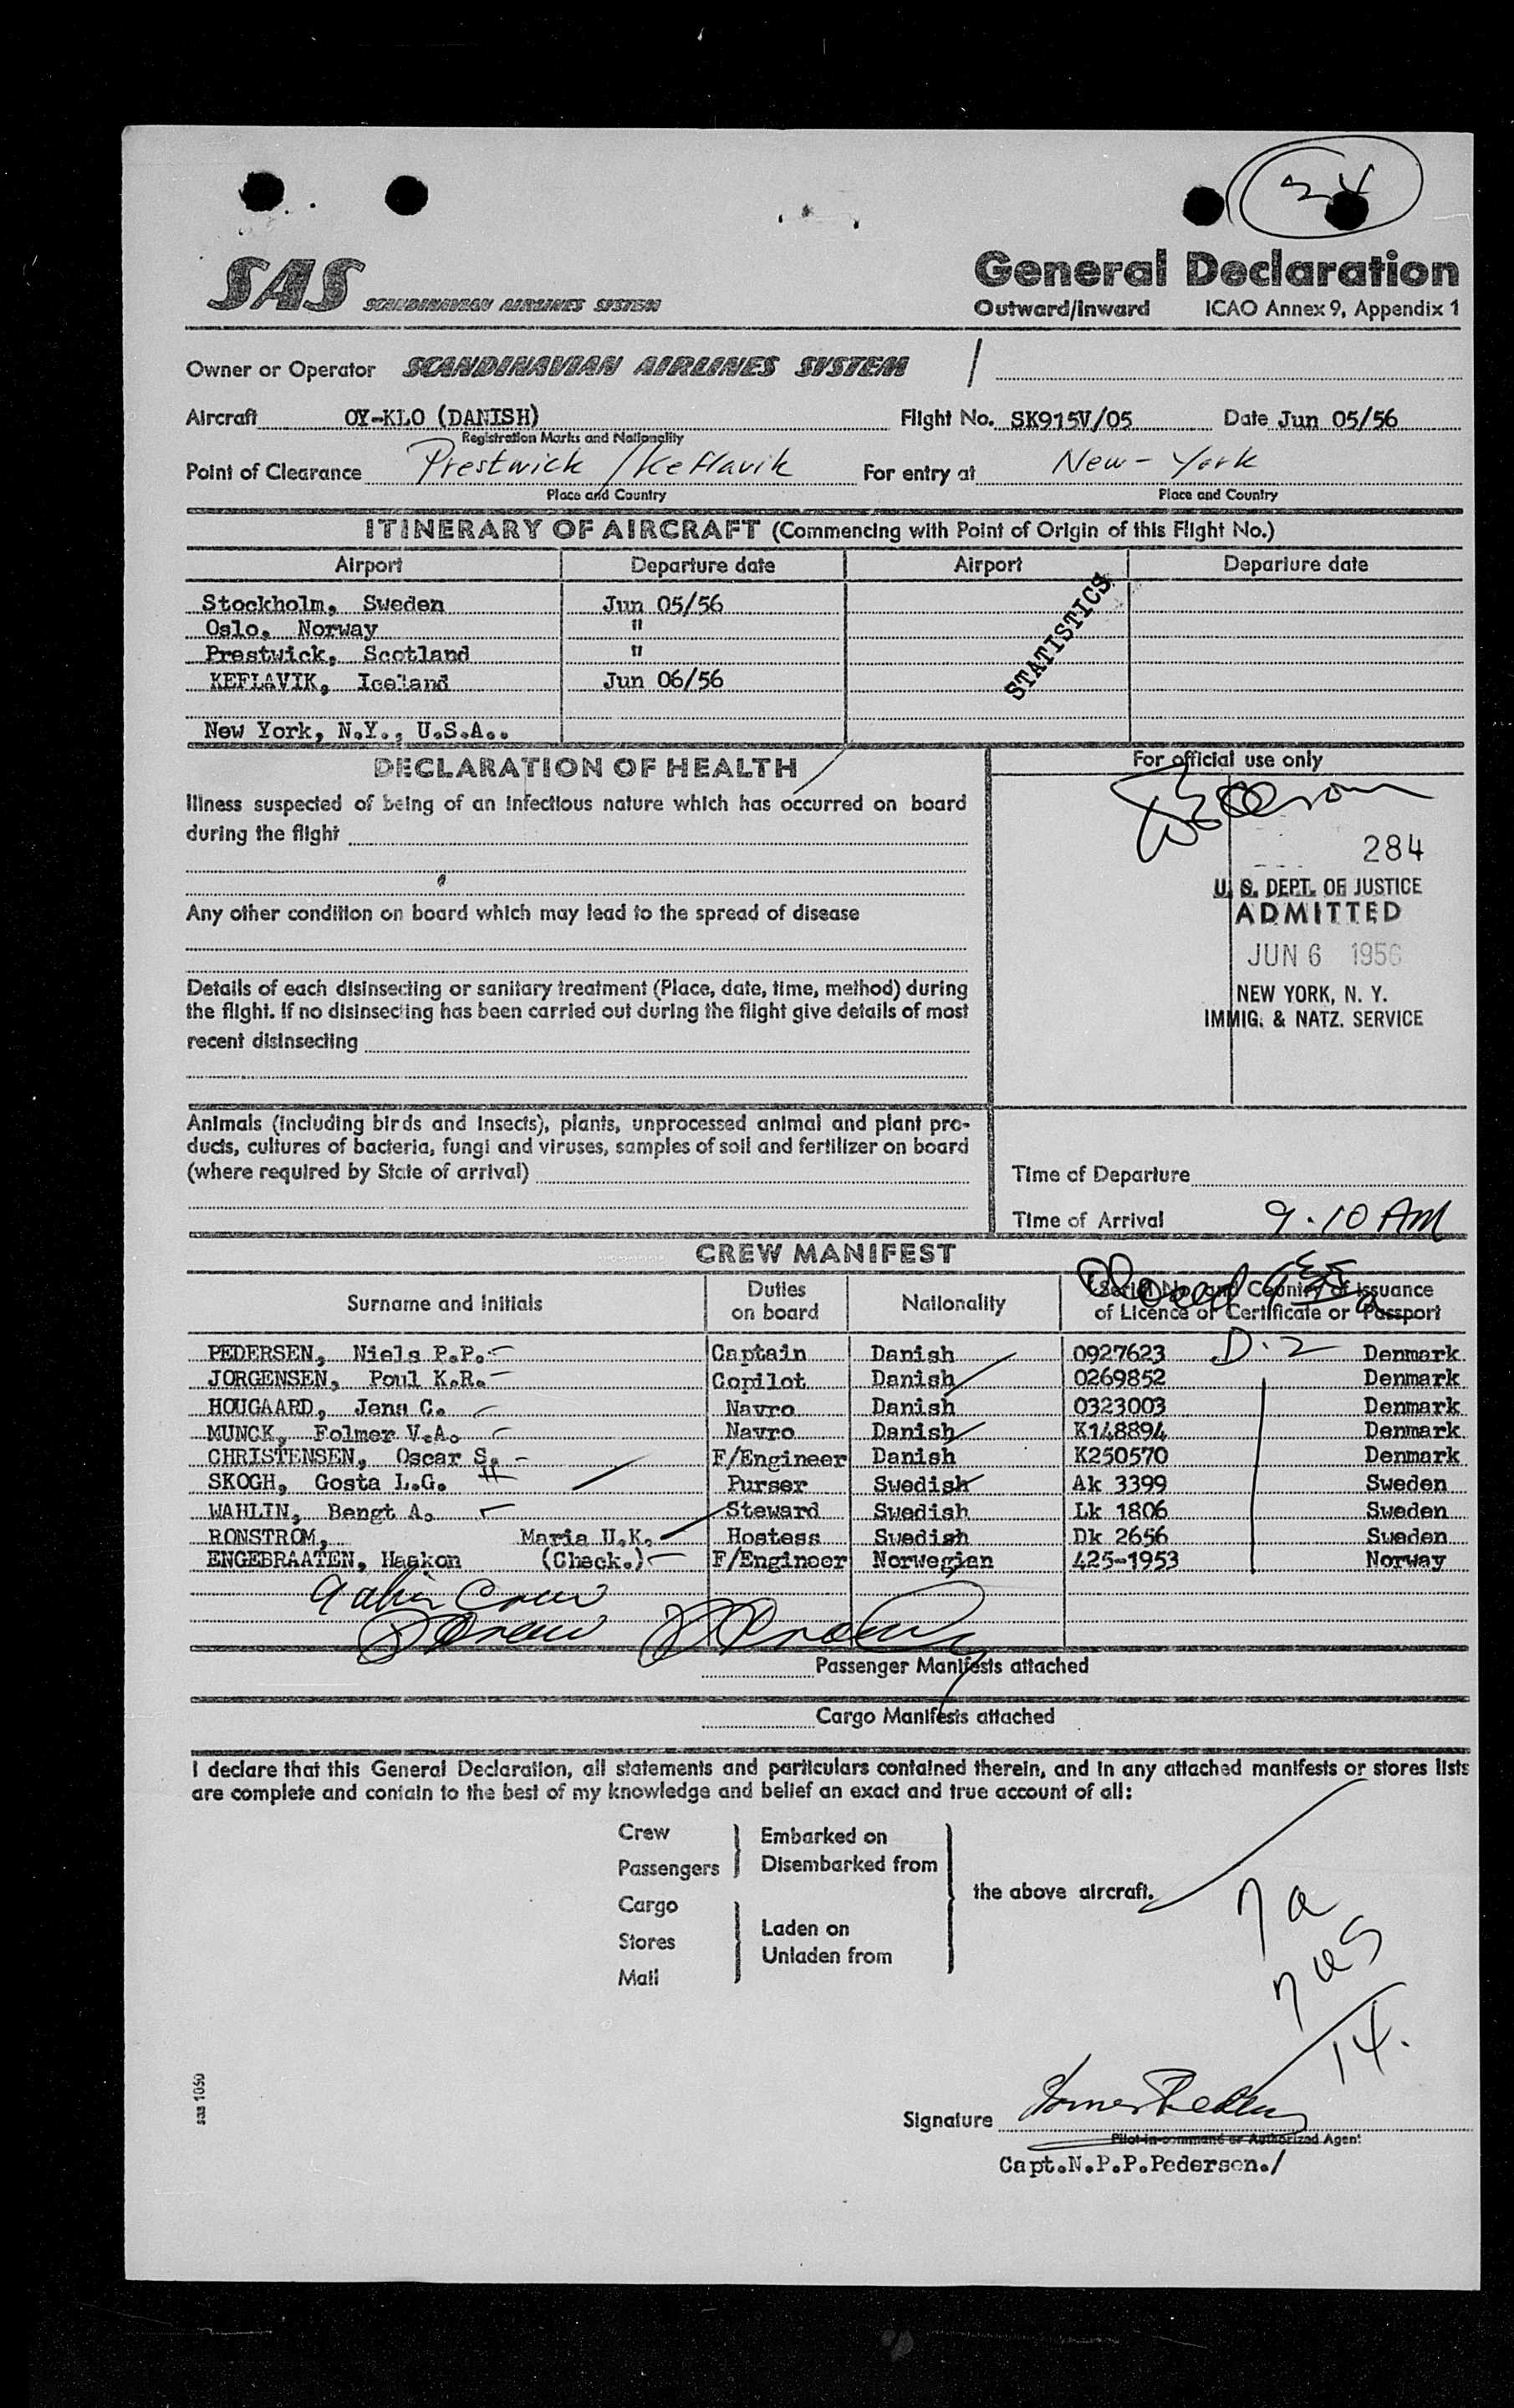 24
SAS SCANDINAVIAN AIRLINES SYSTEM
General Declaration
Outward/Inward ICAO Annex 9, Appendix 1
Owner or Operator SCANDINAVIAN AIRLINES SYSTEM /
Aircraft OY-KLO (DANISH) Flight No. SK915V/05 Date Jun 05/56
Registration Marks and Nationality
Point of Clearance Prestwick / Keflavik For entry at New-York
Place and Country Place and Country
ITINERARY OF AIRCRAFT (Commencing with Point of Origin of this Flight No.)
Airport Departure date Airport Departure date
Stockholm, Sweden Jun 05/56
Oslo, Norway "
Prestwick, Scotland "
KEFLAVIK, Iceland Jun 06/56
New York, N.Y., U.S.A..
STATISTICS
DECLARATION OF HEALTH
Illness suspected of being of an infectious nature which has occurred on board
during the flight
Any other condition on board which may lead to the spread of disease
Details of each disinsecting or sanitary treatment (Place, date, time, method) during
the flight. If no disinsecting has been carried out during the flight give details of most
recent disinsecting
Animals (including birds and insects), plants, unprocessed animal and plant pro-
ducts, cultures of bacteria, fungi and viruses, samples of soil and fertilizer on board
(where required by State of arrival)
For official use only
284
U. S. DEPT. OF JUSTICE
ADMITTED
JUN 6 1956
NEW YORK, N. Y.
IMMIG. & NATZ. SERVICE
Time of Departure
Time of Arrival 9.10 AM
CREW MANIFEST
Surname and Initials Duties on board Nationality Serial No. and Country of issuance
of Licence or Certificate or Passport
PEDERSEN, Niels P.P. Captain Danish 0927623 D.2 Denmark
JORGENSEN, Poul K.R. Copilot Danish 0269852 Denmark
HOUGAARD, Jens C. Navro Danish 0323003 Denmark
MUNCK, Folmer V.A. Navro Danish K148894 Denmark
CHRISTENSEN, Oscar S. F/Engineer Danish K250570 Denmark
SKOGH, Gosta L.G. Purser Swedish Ak 3399 Sweden
WAHLIN, Bengt A. Steward Swedish Lk 1806 Sweden
RONSTROM, Maria U.K. Hostess Swedish Dk 2656 Sweden
ENGEBRAATEN, Haakon (Check.) F/Engineer Norwegian 425-1953 Norway
Crew
Passenger Manifests attached
Cargo Manifests attached
I declare that this General Declaration, all statements and particulars contained therein, and in any attached manifests or stores lists
are complete and contain to the best of my knowledge and belief an exact and true account of all:
Crew
Passengers
Embarked on
Disembarked from
Cargo
Stores
Mail
Laden on
Unladen from
the above aircraft.
14.
sas 1050
Signature
Pilot-in-command or Authorized Agent
Capt.N.P.P.Pedersen./